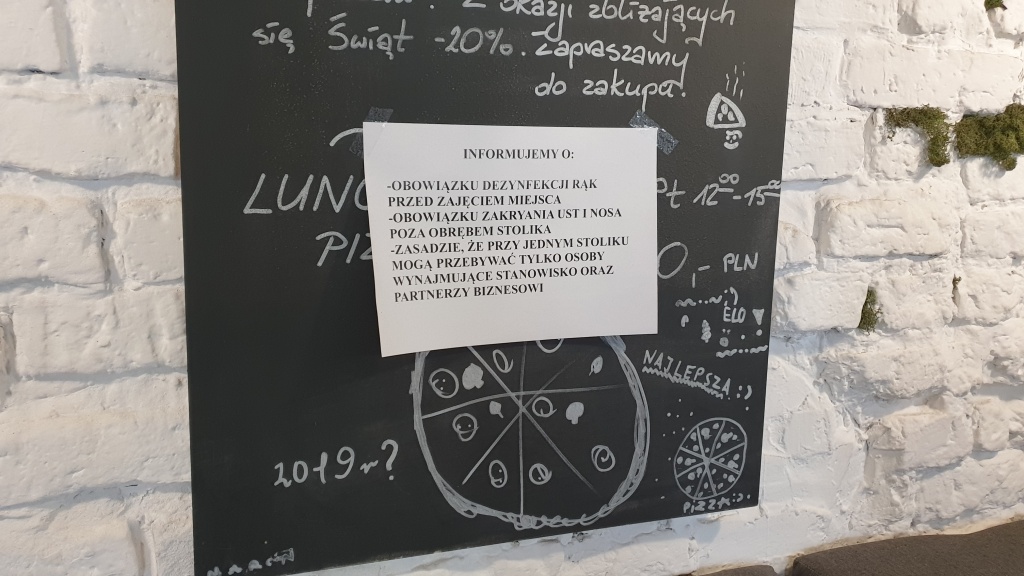 Z okazji zbliżających
się Świąt -20%. Zapraszamy
do zakupa!
INFORMUJEMY O:
-OBOWIĄZKU DEZYNFEKCJI RĄK
PRZED ZAJĘCIEM MIEJSCA
-OBOWIĄZKU ZAKRYANIA UST I NOSA
POZA OBRĘBEM STOLIKA
-ZASADZIE, ŻE PRZY JEDNYM STOLIKU
MOGĄ PRZEBYWAĆ TYLKO OSOBY
WYNAJMUJĄCE STANOWISKO ORAZ
PARTNERZY BIZNESOWI
LUNC pt 1200-1500
PIZ 0,- PLN
:)
ELO!
NAJLEPSZA :)
2019r?
PIZZA:).